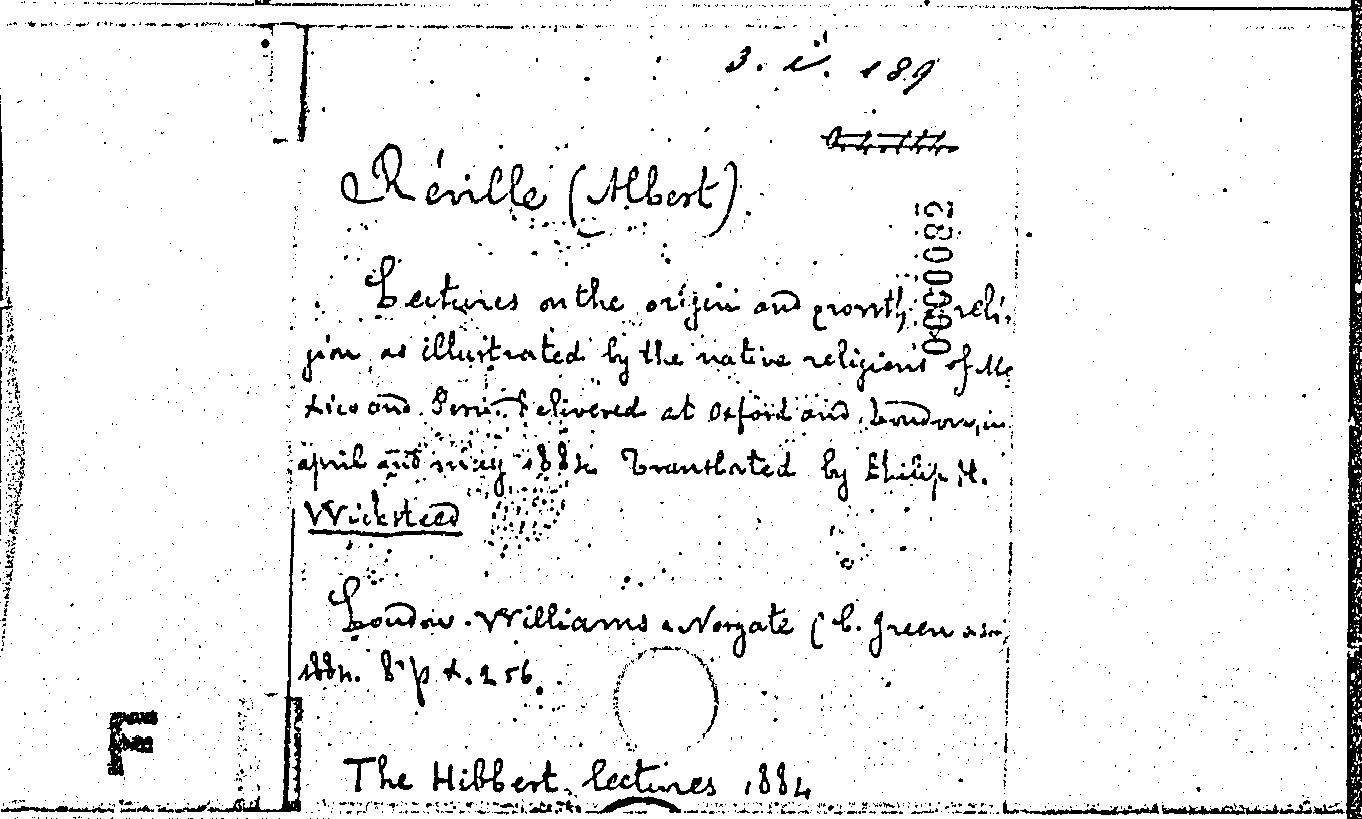 3. i. 189
Réville (Albert)
Lectures on the origin and growth reli-
gion as illustrated by the native religions of Me
xico and Peru. Delivered at Oxford and London, in
april and may 1884. Translated by Philip H.
Wicksteed
London. Williams & Norgate (C. Green & son
1884. 8° p x. 256.
The Hibbert lectures 1884